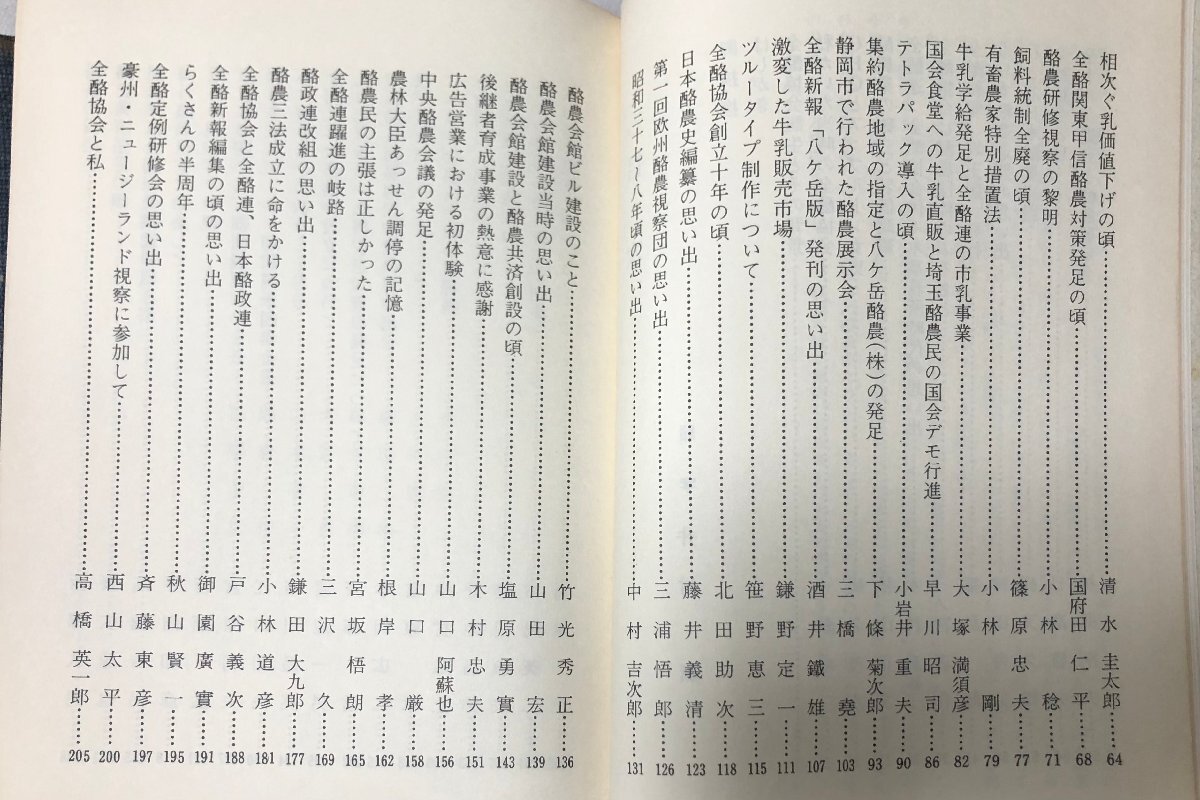 相次ぐ乳価値下げの頃……清水圭太郎……64
全酪関東甲信酪農対策発足の頃……国府田仁平……68
酪農研修視察の黎明……小林稔……71
飼料統制全廃の頃……篠原忠夫……77
有畜農家特別措置法……小林剛……79
牛乳学給発足と全酪連の市乳事業……大塚満須彦……82
国会食堂への牛乳直販と埼玉酪農民の国会デモ行進……早川昭司……86
テトラパック導入の頃……小岩井重夫……90
集約酪農地域の指定と八ケ岳酪農(株)の発足……下條菊次郎……93
静岡市で行われた酪農展示会……三橋堯……103
全酪新報「八ケ岳版」発刊の思い出……酒井鐵雄……107
激変した牛乳販売市場……鎌野定一……111
ツルータイプ制作について……笹野恵三……115
全酪協会創立十年の頃……北田助次……118
日本酪農史編纂の思い出……藤井義清……123
第一回欧州酪農視察団の思い出……三浦悟郎……126
昭和三十七〜八年頃の思い出……中村吉次郎……131
酪農会館ビル建設のこと……竹光秀正……136
酪農会館建設当時の思い出……山田宏……139
酪農会館建設と酪農共済創設の頃……塩原勇實……143
後継者育成事業の熱意に感謝……木村忠夫……151
広告営業における初体験……山口阿蘇也……156
中央酪農会議の発足……山口厳……158
農林大臣あっせん調停の記憶……根岸孝……162
酪農民の主張は正しかった……宮坂梧朗……165
全酪連躍進の岐路……三沢久……169
酪政連改組の思い出……鎌田大九郎……177
酪農三法成立に命をかける……小林道彦……181
全酪協会と全酪連、日本酪政連……戸谷義次……188
全酪新報編集の頃の思い出……御園廣實……191
らくさんの半周年……秋山賢一……195
全酪定例研修会の思い出……斉藤東彦……197
豪州・ニュージーランド視察に参加して……西山太平……200
全酪協会と私……高橋英一郎……205